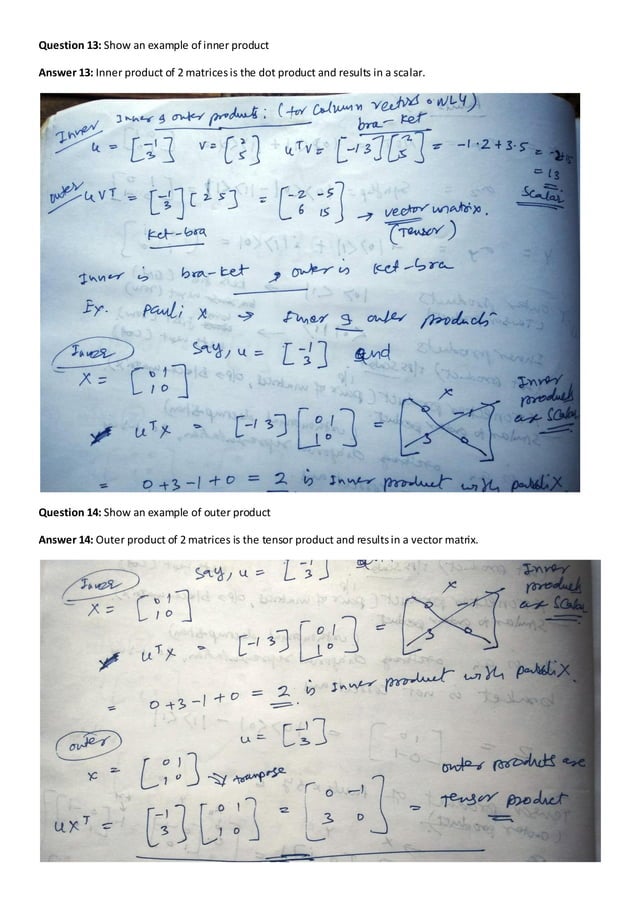 Question 13: Show an example of inner product
Answer 13: Inner product of 2 matrices is the dot product and results in a scalar.
Inner & outer products: (for Column vectors ONLY)
Inner
bra-ket
u = [-1 3] v = [2 5] uᵀv = [-1 3][2 5] = -1·2 + 3·5 = -2+15
= 13
Scalar
outer uvᵀ = [-1 3][2 5] = [-2 -5 6 15] → vector matrix.
ket-bra
(Tensor)
Inner is bra-ket & outer is ket-bra
Ex. Pauli X → Inner & outer products
Inner
Say, u = [-1 3] and
X = [0 1 1 0]
X
Inner products are Scalar
uᵀX = [-1 3][0 1 1 0] = [0 -1 3 0]
= 0+3-1+0 = 2 is Inner product with Pauli X
Question 14: Show an example of outer product
Answer 14: Outer product of 2 matrices is the tensor product and results in a vector matrix.
Inner
Say, u = [-1 3]
X = [0 1 1 0]
X
Inner products are Scalar
uᵀX = [-1 3][0 1 1 0] = [0 -1 3 0]
= 0+3-1+0 = 2 is Inner product with Pauli X.
outer
u = [-1 3]
X = [0 1 1 0] → transpose
outer products are
uXᵀ = [-1 3][0 1 1 0] = [0 -1 3 0] = tensor product